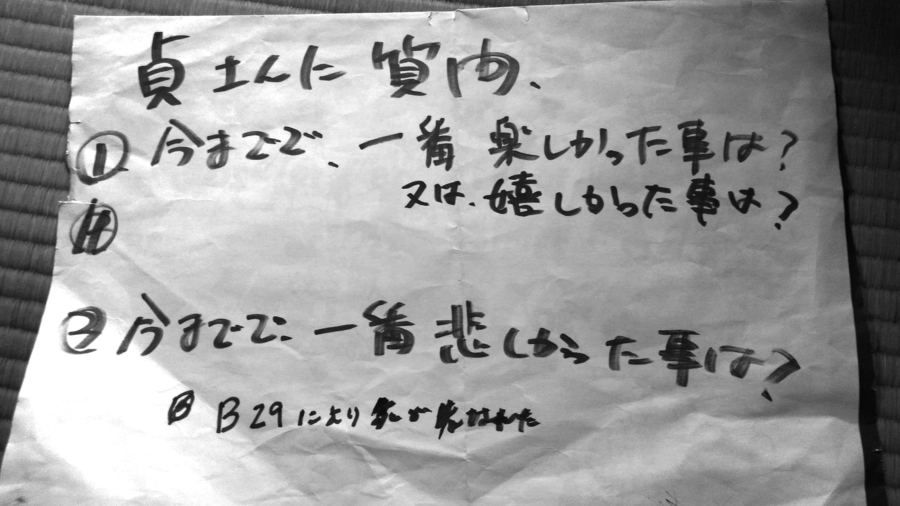 貞さんに質問、
① 今までで、一番 楽しかった事は?
又は、嬉しかった事は?
② 今までで、一番 悲しかった事は?
B29により が